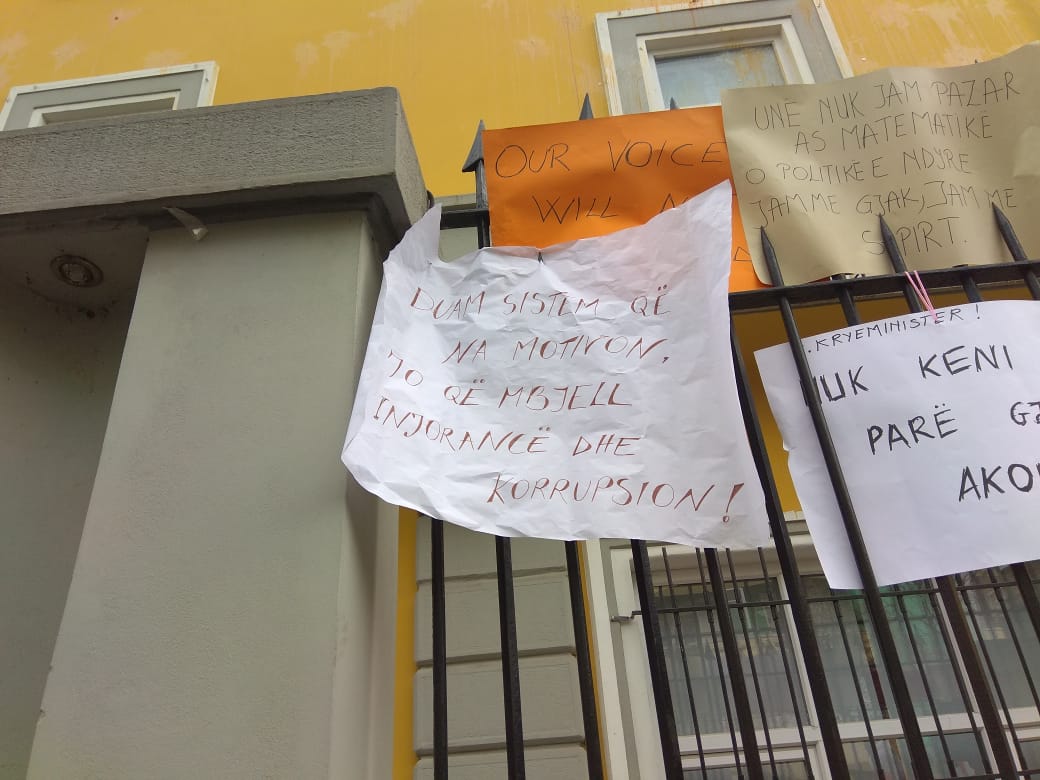 OUR VOICE
WILL
UNE NUK JAM PAZAR
AS MATEMATIKE
O POLITIKË E NDYRE
JAM ME GJAK, JAM ME
SHPIRT.
DUAM SISTEM QË
NA MOTIVON,
JO QË MBJELL
INJORANCË DHE
KORRUPSION!
KRYEMINISTER!
NUK KENI
PARË